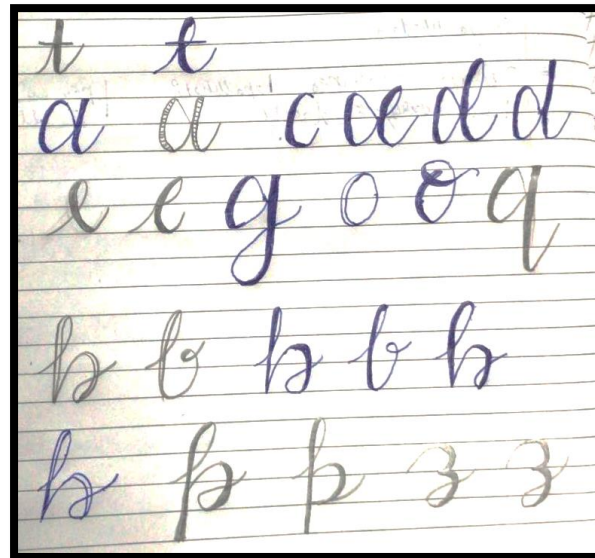 t t
a a c æ d d
e e g o o q
b b b b b
b p p z z